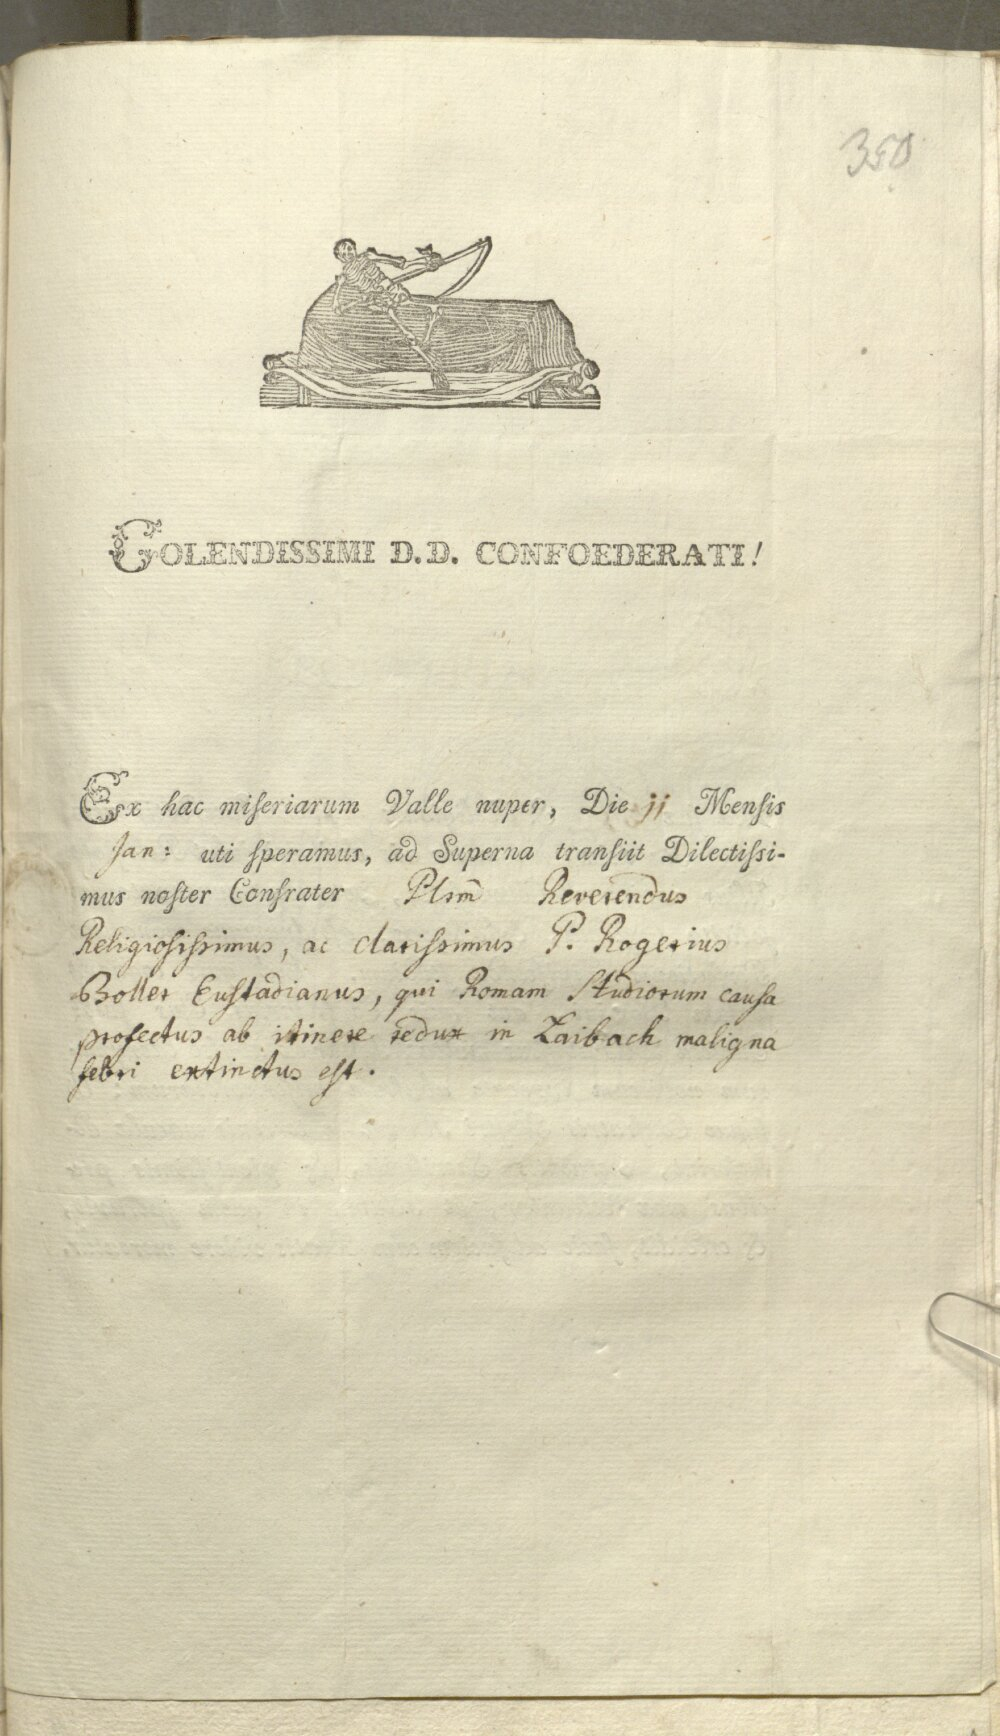 350
COLENDISSIMI D.D. CONFOEDERATI!
Ex hac miſeriarum Valle nuper, Die jj Menſis
Jan: uti ſperamus, ad Superna tranſiit Dilectiſsi-
mus noſter Confrater Plrm̄ Reverendus
Religioſiſsimus, ac clariſsimus P. Rogerius
Boller Euſtadianus, qui Romam Studiorum cauſa
profectus ab itinere redux in Laibach maligna
febri extinctus eſt.